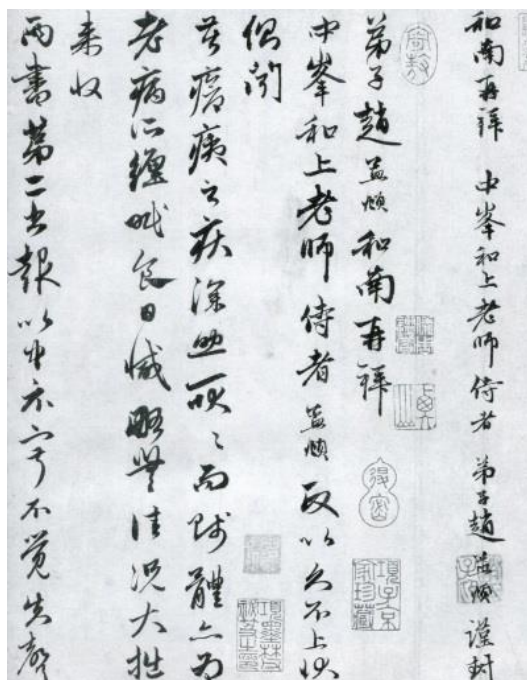 和南再拜 中峯和上老師侍者 弟子趙孟頫謹封
弟子趙孟頫和南再拜
中峯和上老師侍者孟頫政以久不上狀
側聞
苦瘡痍之疾深助耿々而賤體亦為
老病所纏眠食日減略無佳況大拙
来收
兩書第二書報以中示寂不覺失聲
項子京家珍藏